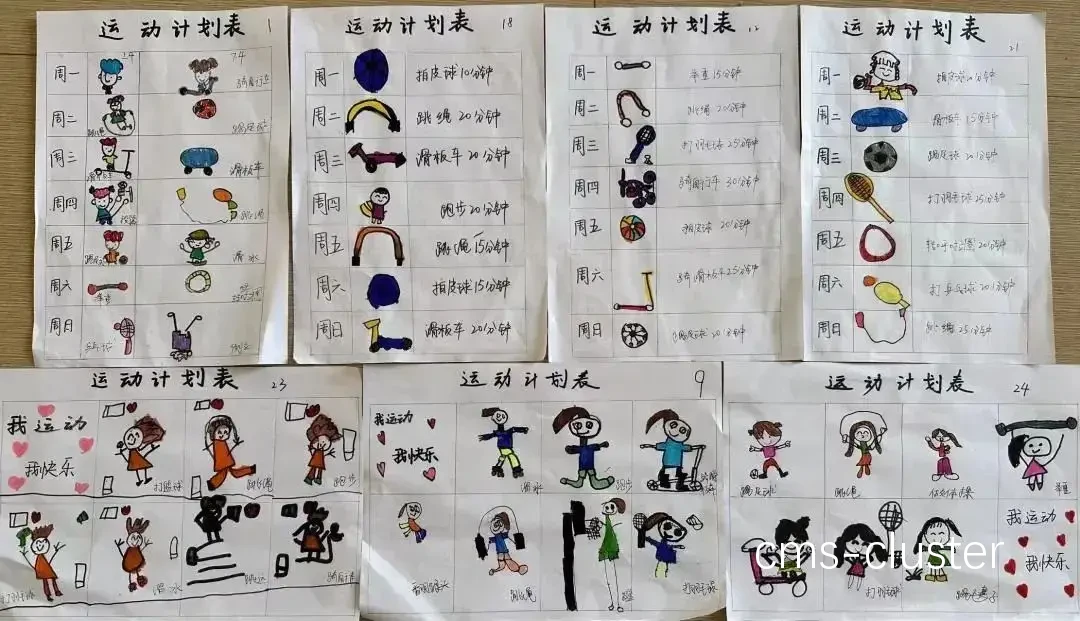 运动计划表 1
周一 骑自行车
周二 跳绳 踢足球
周三 滑板车
周四 跳绳
周五 踢足球 滑冰
周六 举重
周日
运动计划表 18
周一 拍皮球10分钟
周二 跳绳 20分钟
周三 滑板车 20分钟
周四 跑步20分钟
周五 跳绳15分钟
周六 拍皮球15分钟
周日 滑板车 20分钟
运动计划表 12
周一 举重15分钟
周二 跳绳 20分钟
周三 打羽毛球25分钟
周四 骑自行车 30分钟
周五 拍皮球 20分钟
周六 骑滑板车25分钟
周日 踢足球 20分钟
运动计划表 21
周一
周二 滑板车 15分钟
周三 踢足球 20分钟
周四 打羽毛球 25分钟
周五 转呼啦圈 20分钟
周六 打乒乓球 20分钟
周日 跳绳 25分钟
运动计划表 23
我运动
我快乐
打篮球 跳绳 跑步
打羽毛球 滑冰 跳远 骑自行车
运动计划表 9
我运动
我快乐
滑冰 跑步
跳绳 打羽毛球
运动计划表 24
踢足球 跳绳 举重
打羽毛球 踢毽子
我运动
我快乐
cms-cluster